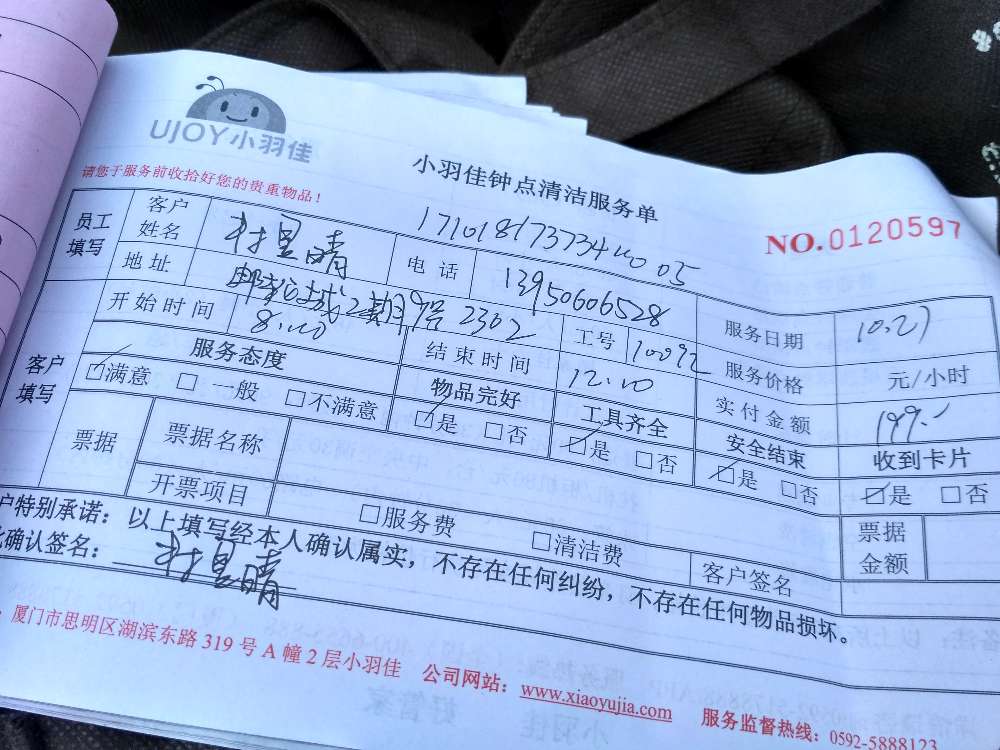 UJOY小羽佳
小羽佳钟点清洁服务单
请您于服务前收拾好您的贵重物品！
NO.0120597
员工填写
客户姓名
晴
电话
13950606528
服务日期
10.27
地址
2302
工号
10092
服务价格
元/小时
客户填写
开始时间
8:00
结束时间
12.00
实付金额
199.-
服务态度
物品完好
工具齐全
安全结束
收到卡片
☑满意 □一般 □不满意
☑是 □否
☑是 □否
☑是 □否
☑是 □否
票据
票据名称
票据金额
开票项目
□服务费 □清洁费
客户签名
户特别承诺：以上填写经本人确认属实，不存在任何纠纷，不存在任何物品损坏。
确认签名：
晴
厦门市思明区湖滨东路319号A幢2层小羽佳 公司网站：www.xiaoyujia.com 服务监督热线：0592-5888123